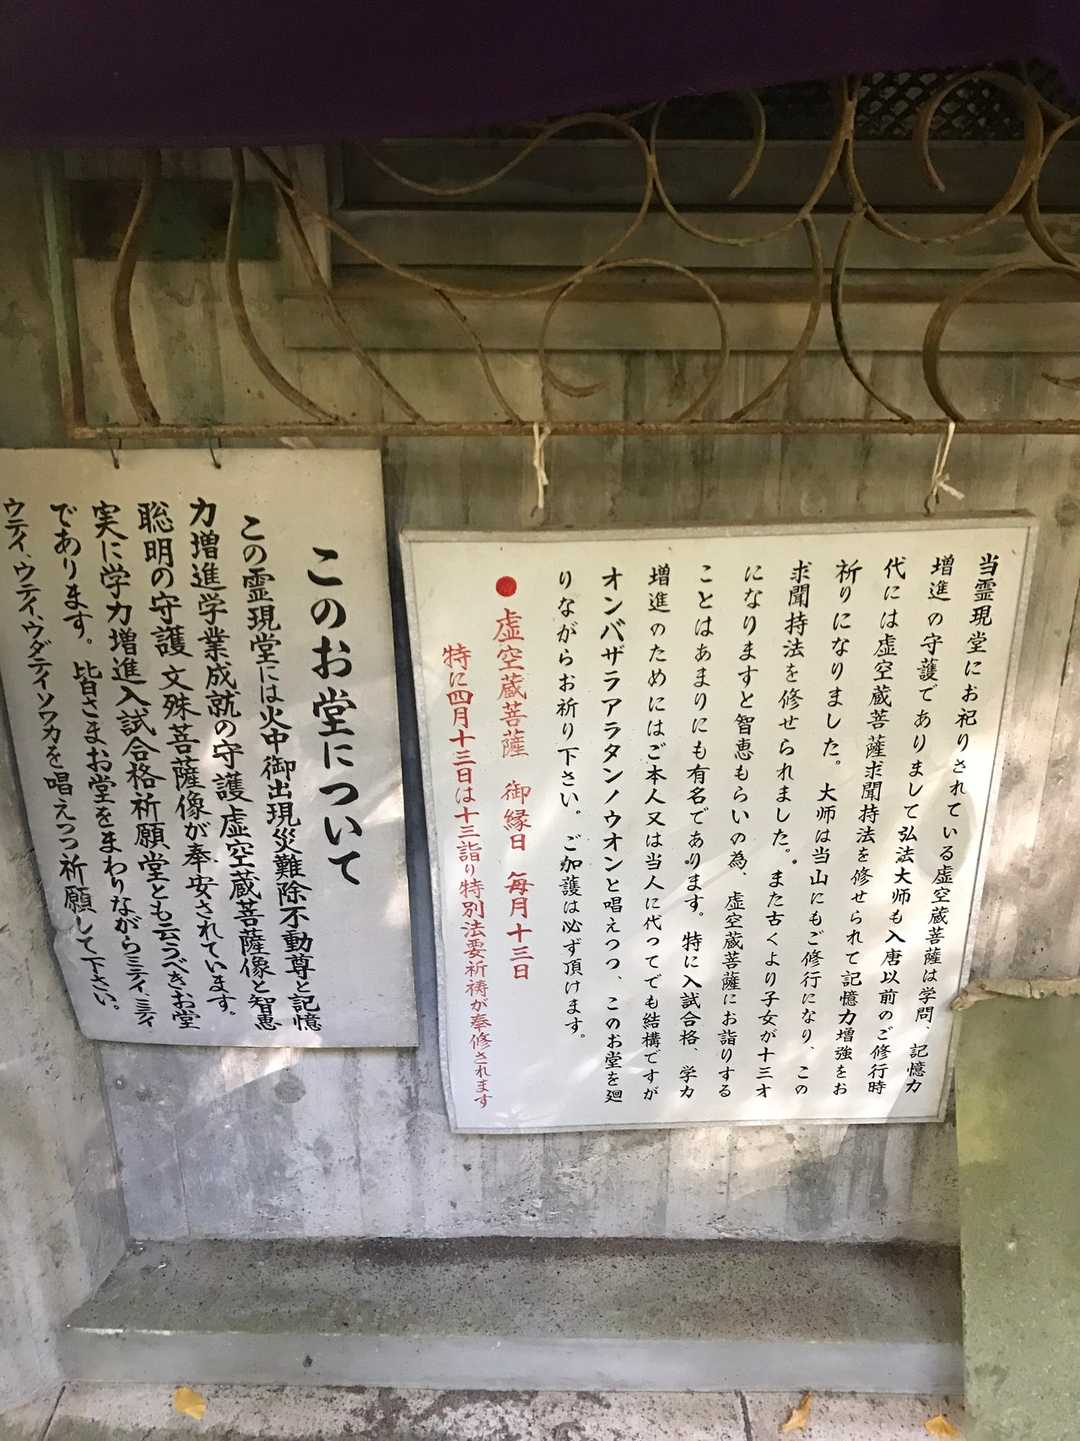 当霊現堂にお祀りされている虚空蔵菩薩は学問、記憶力
増進の守護でありまして弘法大师も入唐以前のご修行時
代には虚空蔵菩薩求聞持法を修せられて記憶力増強をお
祈りになりました。大师は当山にもご修行になり、この
求聞持法を修せられました。また古くより子女が十三才
になりますと智恵もらいの為、虚空蔵菩薩にお詣りする
ことはあまりにも有名であります。特に入試合格、学力
増進のためにはご本人又は当人に代ってでも結構ですが
オンバザラアラタンノウオンと唱えつつ、このお堂を廻
りながらお祈り下さい。ご加護は必ず頂けます。
●虚空蔵菩薩 御縁日 毎月十三日
特に四月十三日は十三詣り特別法要祈祷が奉修されます
このお堂について
この霊現堂には火中御出現災難除不動尊と記憶
力増進学業成就の守護虚空蔵菩薩像と智恵
聡明の守護文殊菩薩像が奉安されています。
実に学力増進入試合格祈願堂とも云うべきお堂
であります。皆さまお堂をまわりながらミティ、ミティ
ウティ、ウティ、ウダティソワカを唱えつつ祈願して下さい。